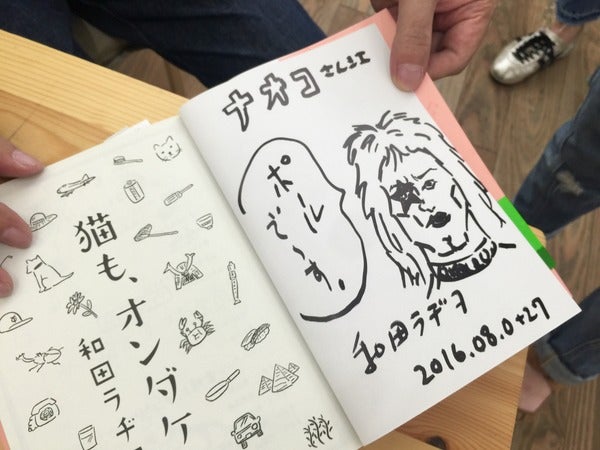 猫も、オンダケ
和田ラヂ
ナオコさん江
ポール
で〜す。
和田ラヂヲ
2016.08.0+27